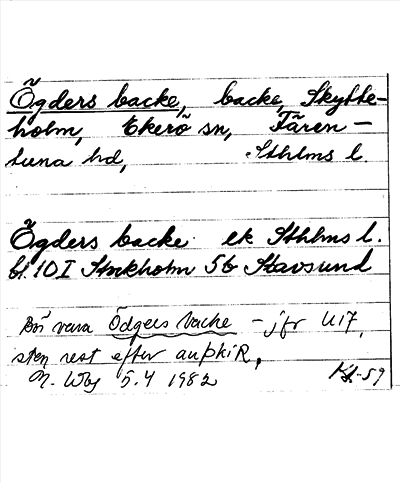 Ögders backe, backe, Skytte-
holm, Ekerö sn, Fären-
tuna hd, Sthlms l.
Ögders backe ek Sthlms l.
bl. 10 I Stockholm 5b Stavsund
Bör vara Ödgers backe - jfr U 17,
sten rest efter auþkiR,
5.4 1982
-59